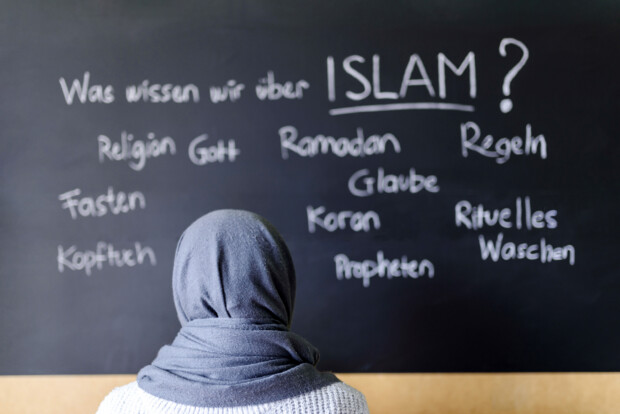 Was wissen wir über ISLAM?
Religion Gott Ramadan Regeln
Glaube
Fasten Koran Rituelles
Waschen
Kopftuch Propheten